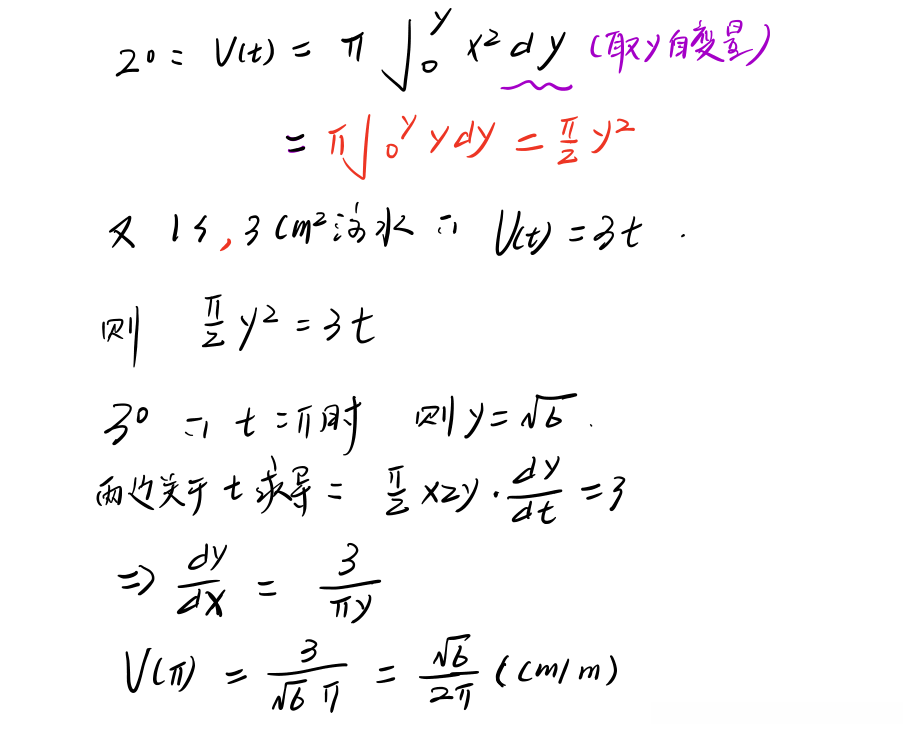 2° = V(t) = π∫₀^y x² dy (取y自变量)
= π∫₀^y y dy = π/2 y²
又 1s, 3cm²注水 ∴ V(t) = 3t.
则 π/2 y² = 3t
3° ∴ t = π时 则 y = √6.
两边关于 t 求导 = π/2 × 2y · dy/dt = 3
⇒ dy/dx = 3/πy
V(π) = 3/√6 π = √6/2π (cm/m)